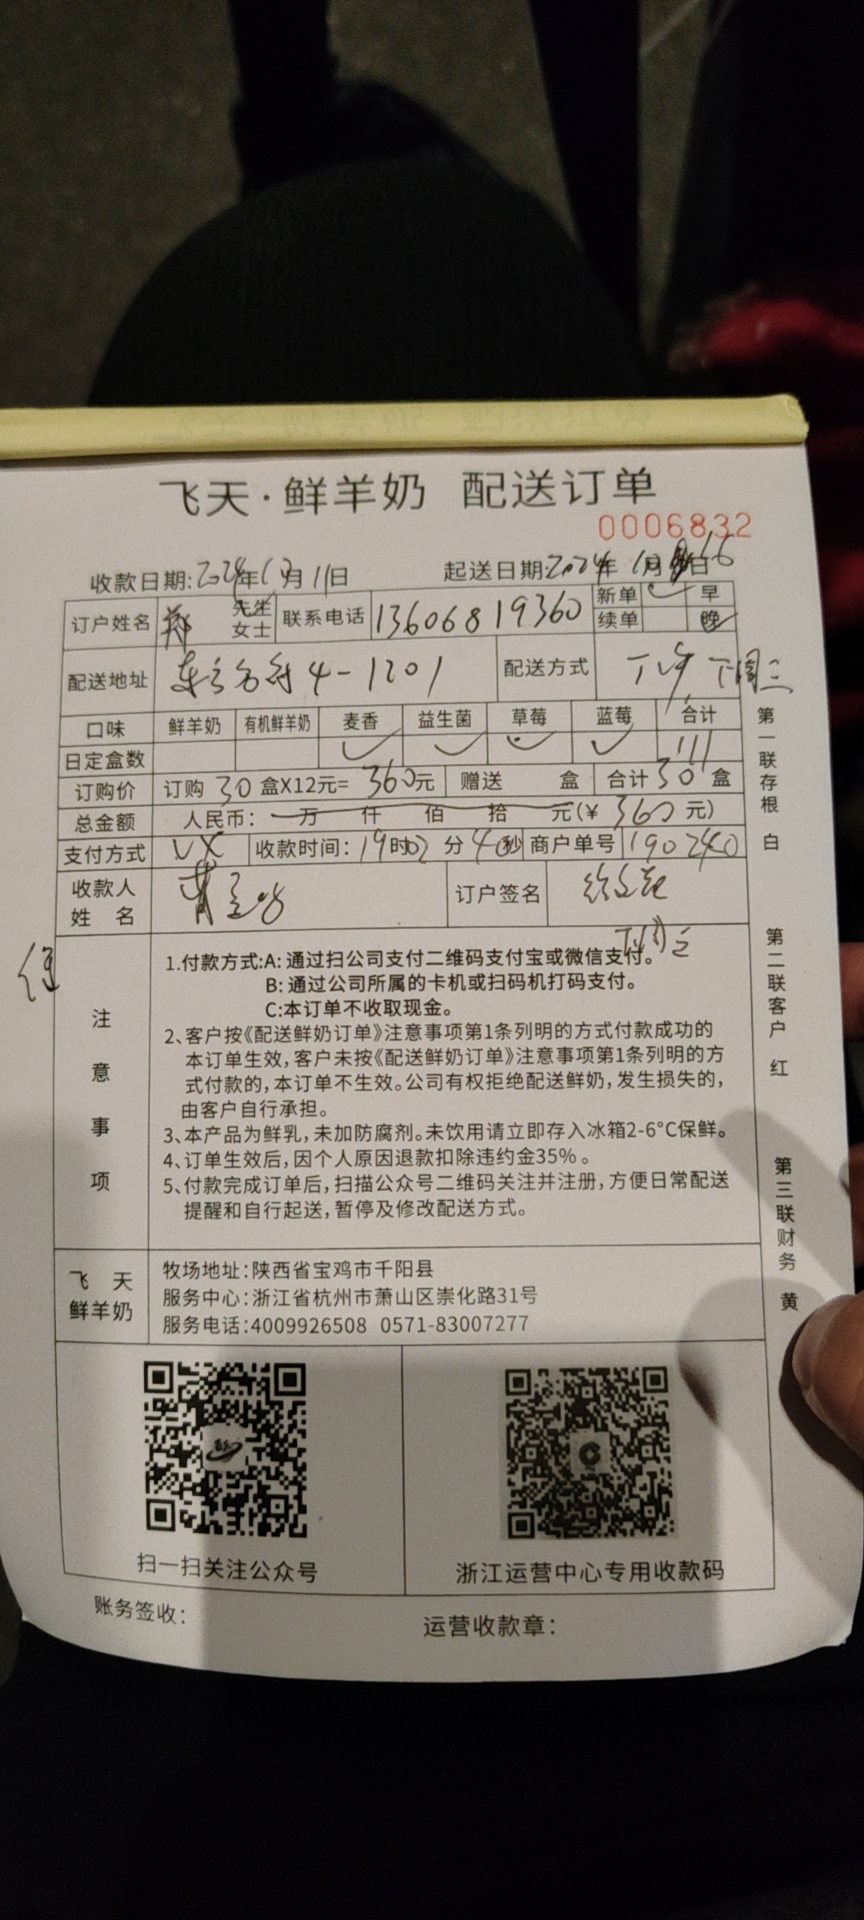 飞天·鲜羊奶 配送订单
0006832
收款日期:2024年12月11日 起送日期:2024年 月 日
订户姓名 郑 先生 女士 联系电话 13606819360 新单 早 续单 晚
配送地址 4-1201 配送方式 下周三
口味 鲜羊奶 有机鲜羊奶 麦香 益生菌 草莓 蓝莓 合计
日定盒数 ✓ ✓ ✓ ✓
订购价 订购 30 盒X12元= 360元 赠送 盒 合计 30 盒
总金额 人民币: 万 仟 佰 拾 元(¥ 360 元)
支付方式 VX 收款时间: 19时02分40秒 商户单号 190240
收款人姓名 订户签名
注意事项
1.付款方式:A: 通过扫公司支付二维码支付宝或微信支付。
B: 通过公司所属的卡机或扫码机打码支付。
C:本订单不收取现金。
2、客户按《配送鲜奶订单》注意事项第1条列明的方式付款成功的
本订单生效,客户未按《配送鲜奶订单》注意事项第1条列明的方
式付款的,本订单不生效。公司有权拒绝配送鲜奶,发生损失的,
由客户自行承担。
3、本产品为鲜乳,未加防腐剂。未饮用请立即存入冰箱2-6°C保鲜。
4、订单生效后,因个人原因退款扣除违约金35%。
5、付款完成订单后,扫描公众号二维码关注并注册,方便日常配送
提醒和自行起送,暂停及修改配送方式。
飞天
鲜羊奶
牧场地址:陕西省宝鸡市千阳县
服务中心:浙江省杭州市萧山区崇化路31号
服务电话:4009926508 0571-83007277
扫一扫关注公众号
浙江运营中心专用收款码
账务签收:
运营收款章:
第一联存根 白
第二联客户 红
第三联财务 黄